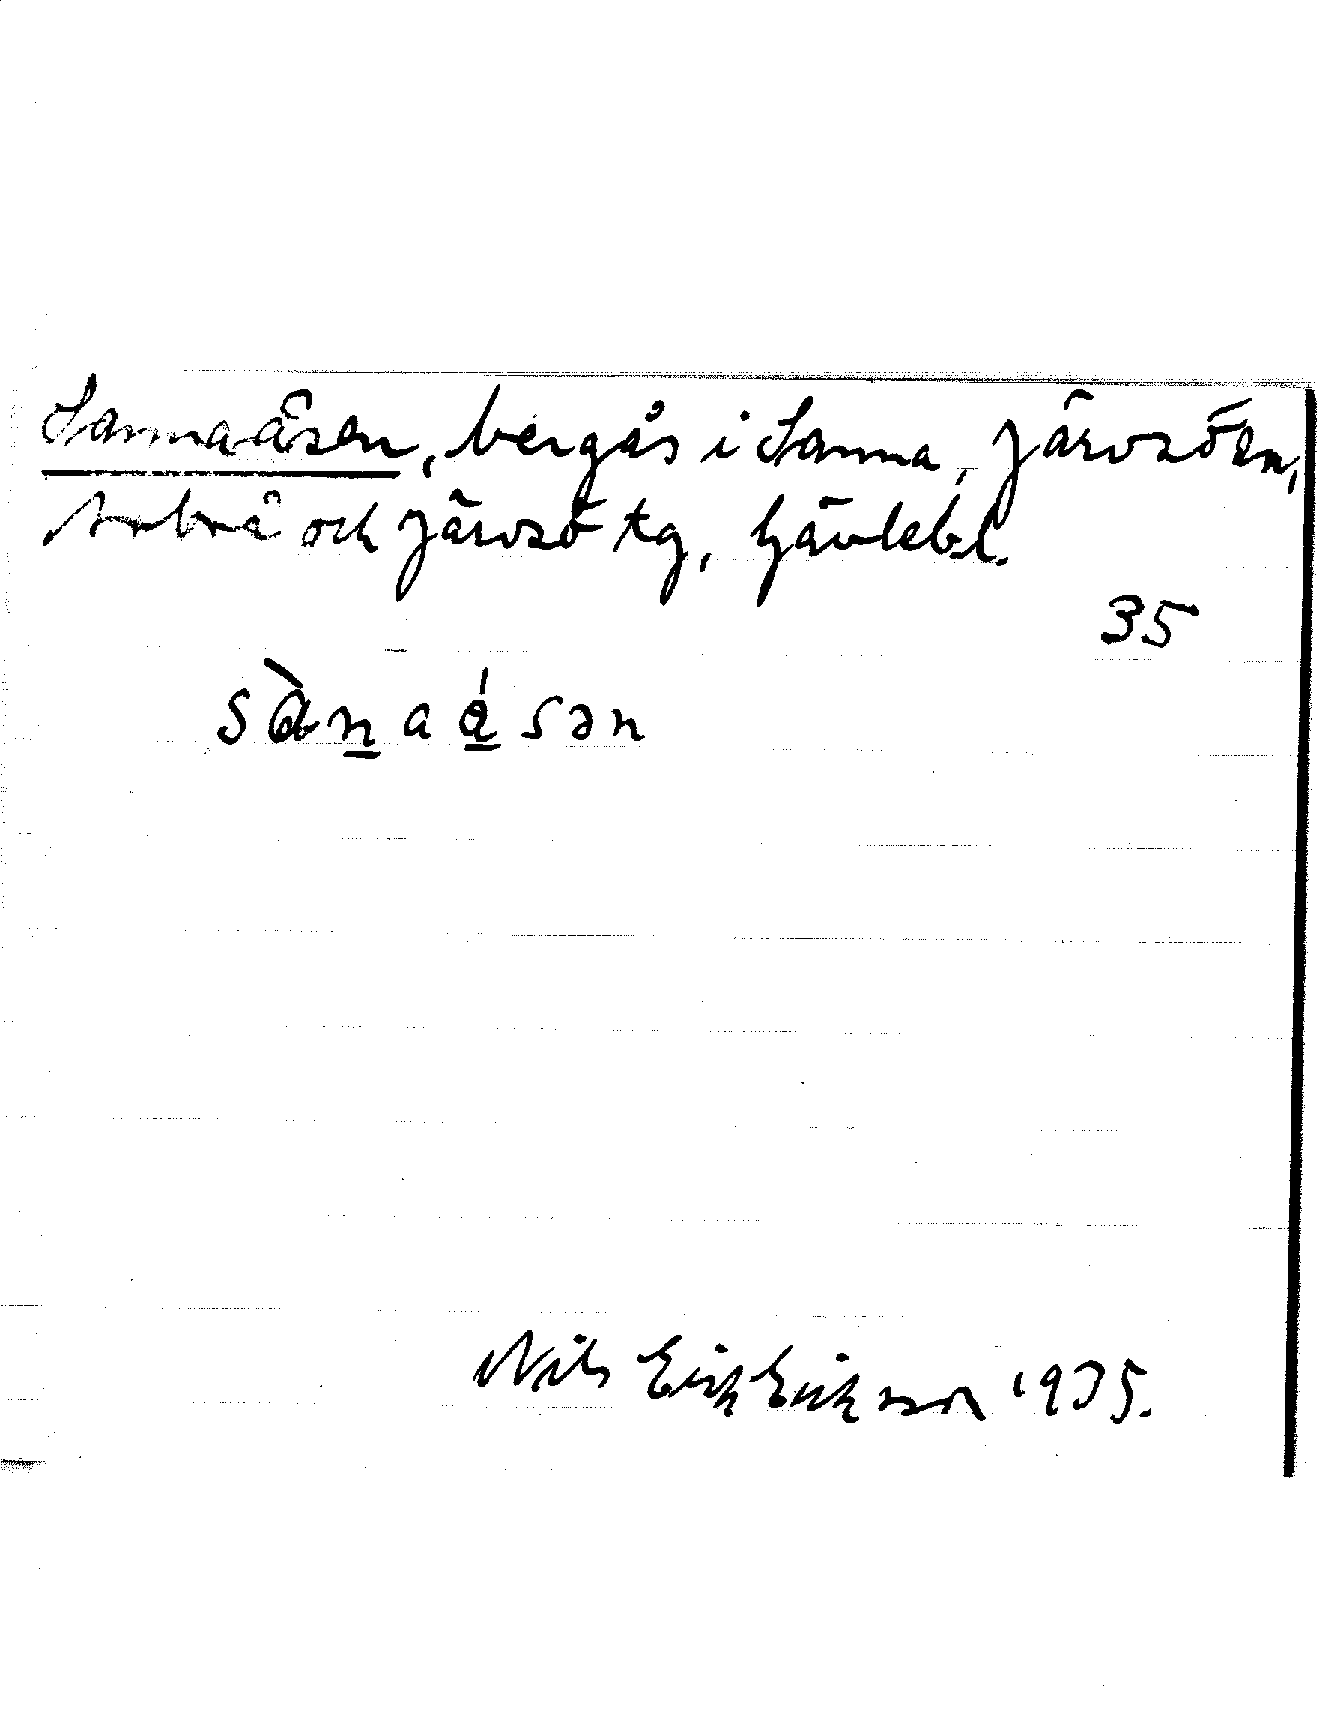 Sannaåsen, bergås i Sanna, Järvsö sn,
Arbrå och Järvsö tg, Gävlebl.
35
sànaåsən
Nils Erik Eriksson 1935.